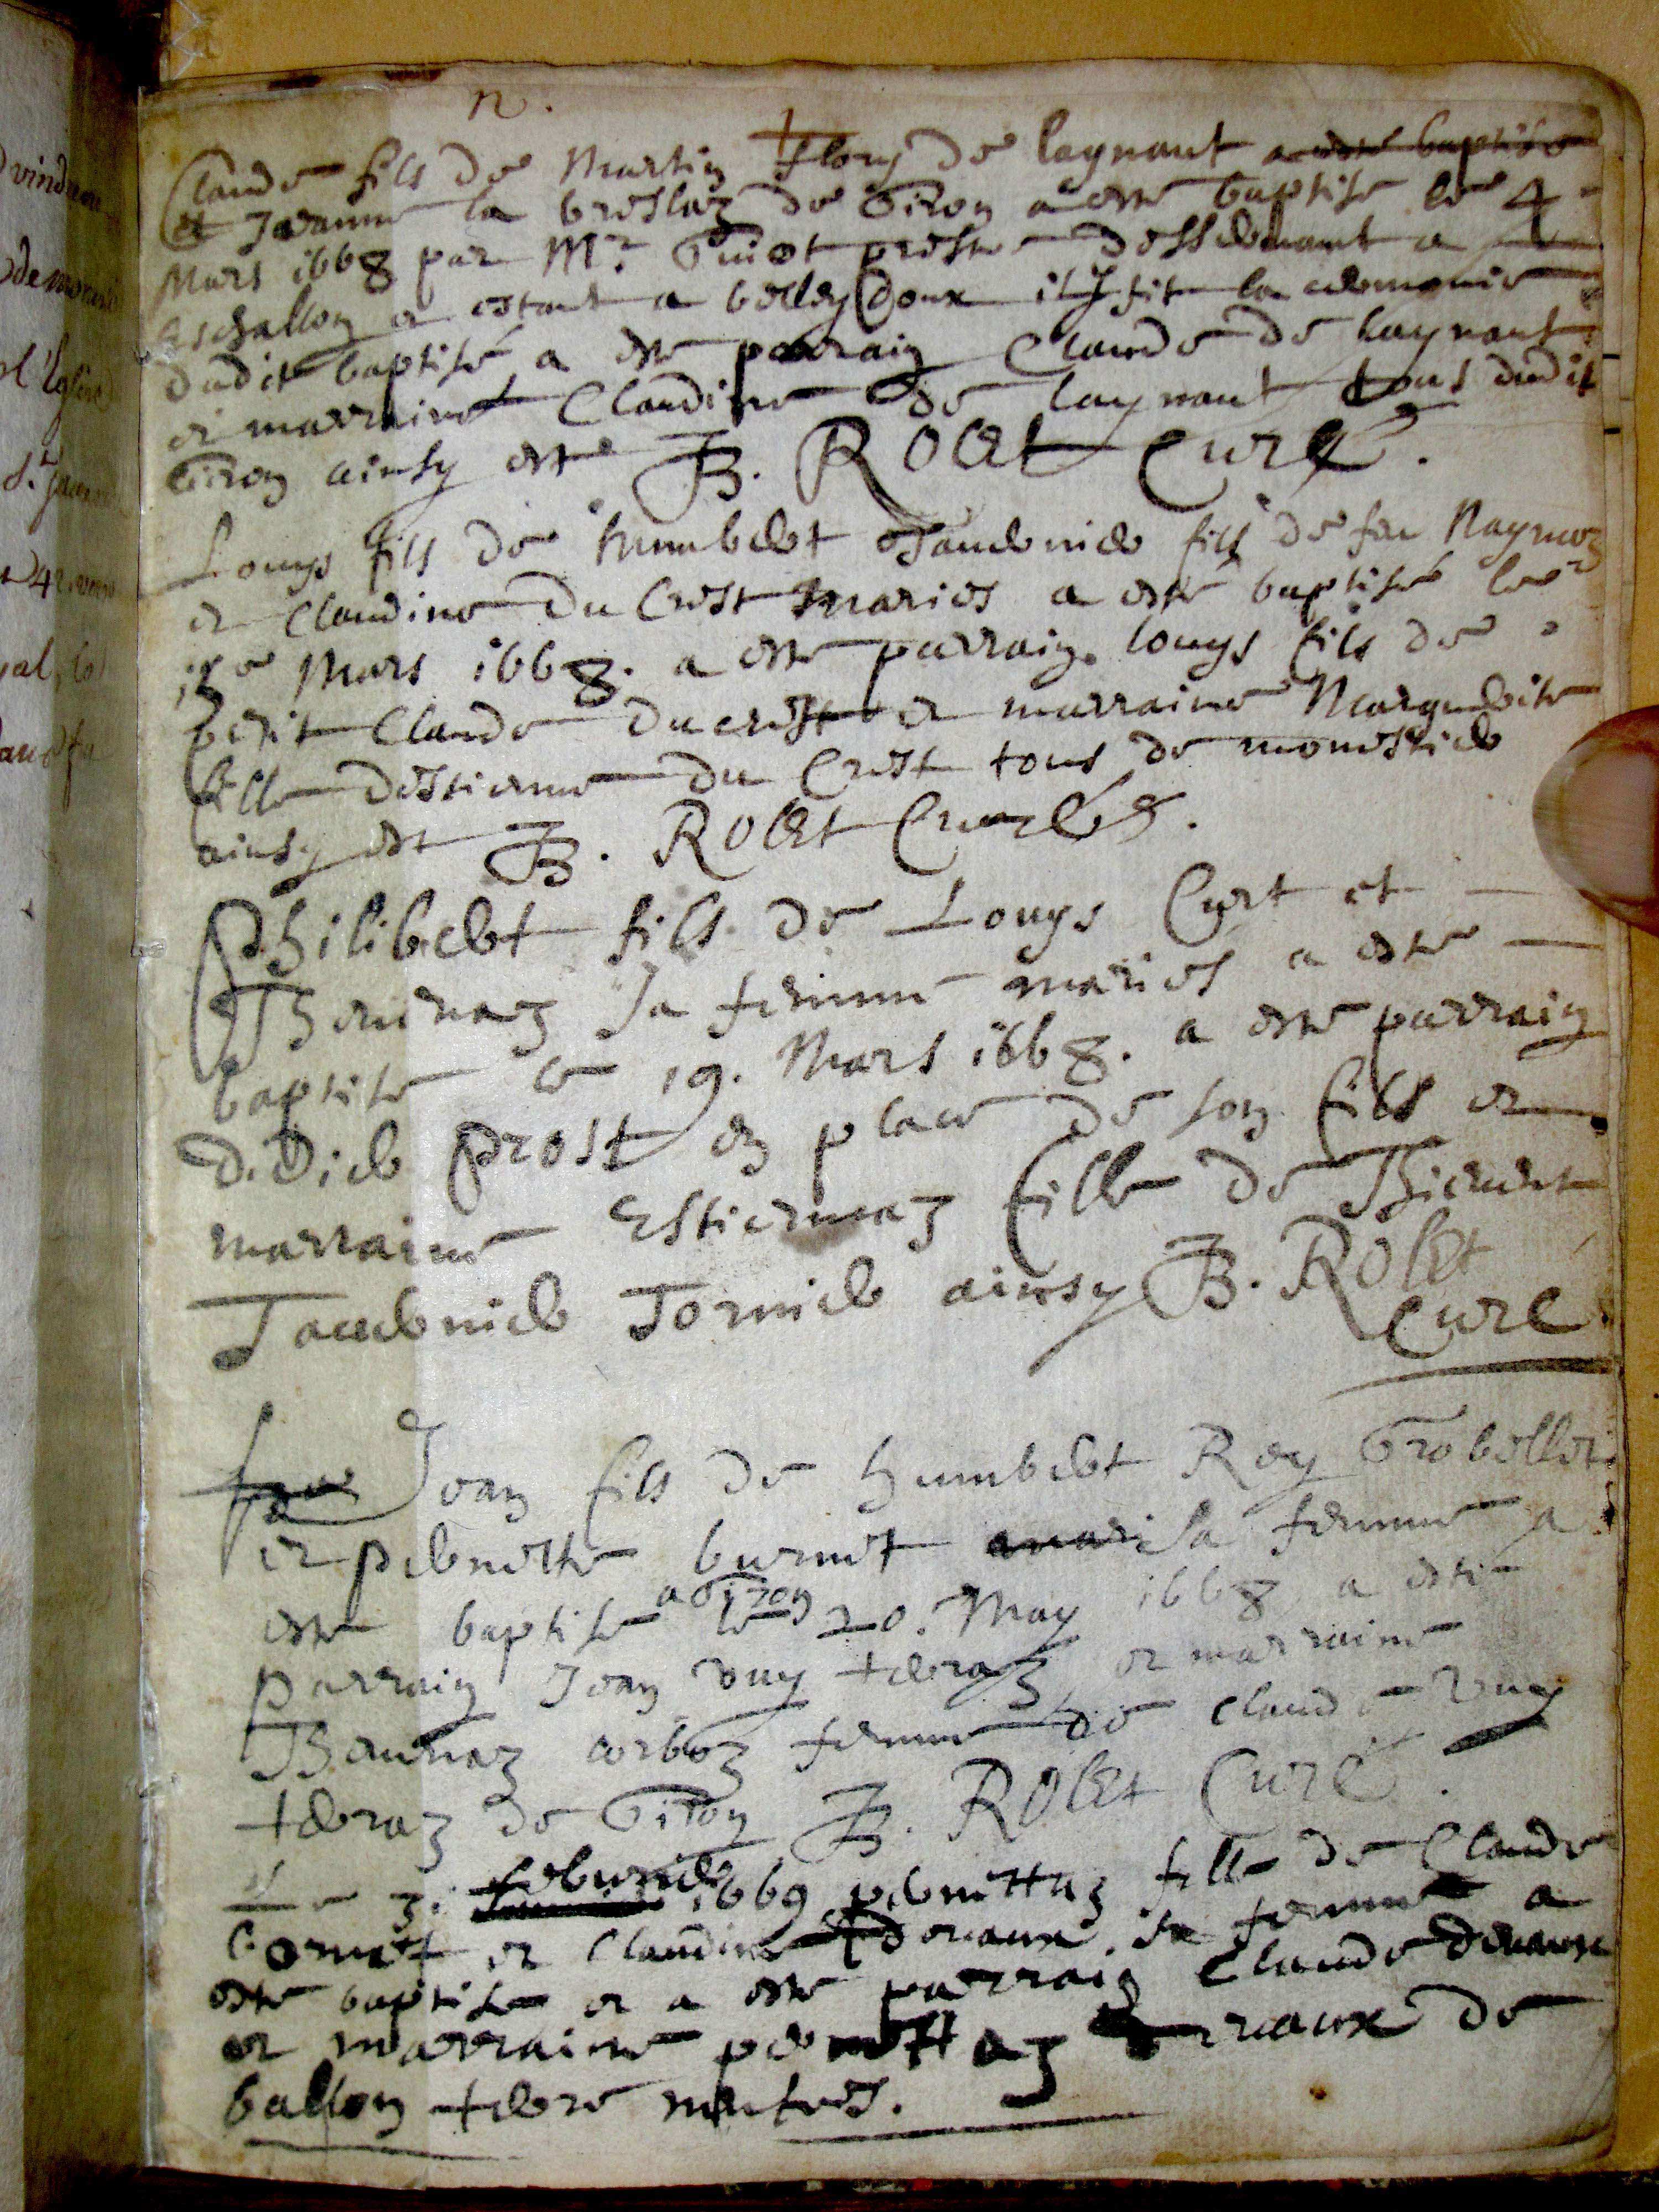 n.
Claude fils de Martin Flory de laynant a esté baptisé
et Jeanne la breslaz de Giron a esté baptisé le 4
Mars 1668 par Mr. Guiot prestre desservant a
Eschallon et estant a belleydoux il y fit la ceremonie
dudit baptisé a esté parrain Claude de laynant
et marraine Claudine de laynant tous dudit
Giron ainsy este B. Rolet Curé.
Louys fils de humbert Tavernier fils de feu Raymoz
et Claudine Du Crest mariés a esté baptisé le
Mars 1668. a esté parrain louys fils de
petit Claude ducrest et marraine Marguerite
fille destienne du Crest tous de monestier
ainsy est B. Rolet Curé.
Philibert fils de Louys Curt et
Thevenaz sa femme mariés a esté
baptisé le 19. Mars 1668. a esté parrain
Didier prost en place de son fils et
marraine Estiennaz fille de Thievent
Tavernier Tornier ainsy B. Rolet
Curé
Jean fils de humbert Rey Grobellet
et pernette burnet sa femme a
esté baptisé a Giron le 20. May 1668 a esté
parrain Jean vuy terraz et marraine
Thevenaz corboz femme de claude vuy
terraz de Giron B. Rolet Curé.
Le 3. febvrier 1669 pernettaz fille de Claude
Cornet et Claudine devaux sa femme a
esté baptisé et a esté parrain Claude devaux
et marraine pernettaz devaux de
ballon terre